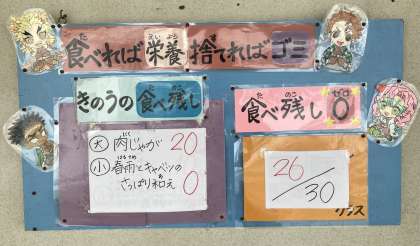 食べれば栄養 捨てればゴミ
きのうの食べ残し
大 肉じゃが 20
小 春雨とキャベツの
さっぱり和え 0
食べ残し0
26/30
クラス